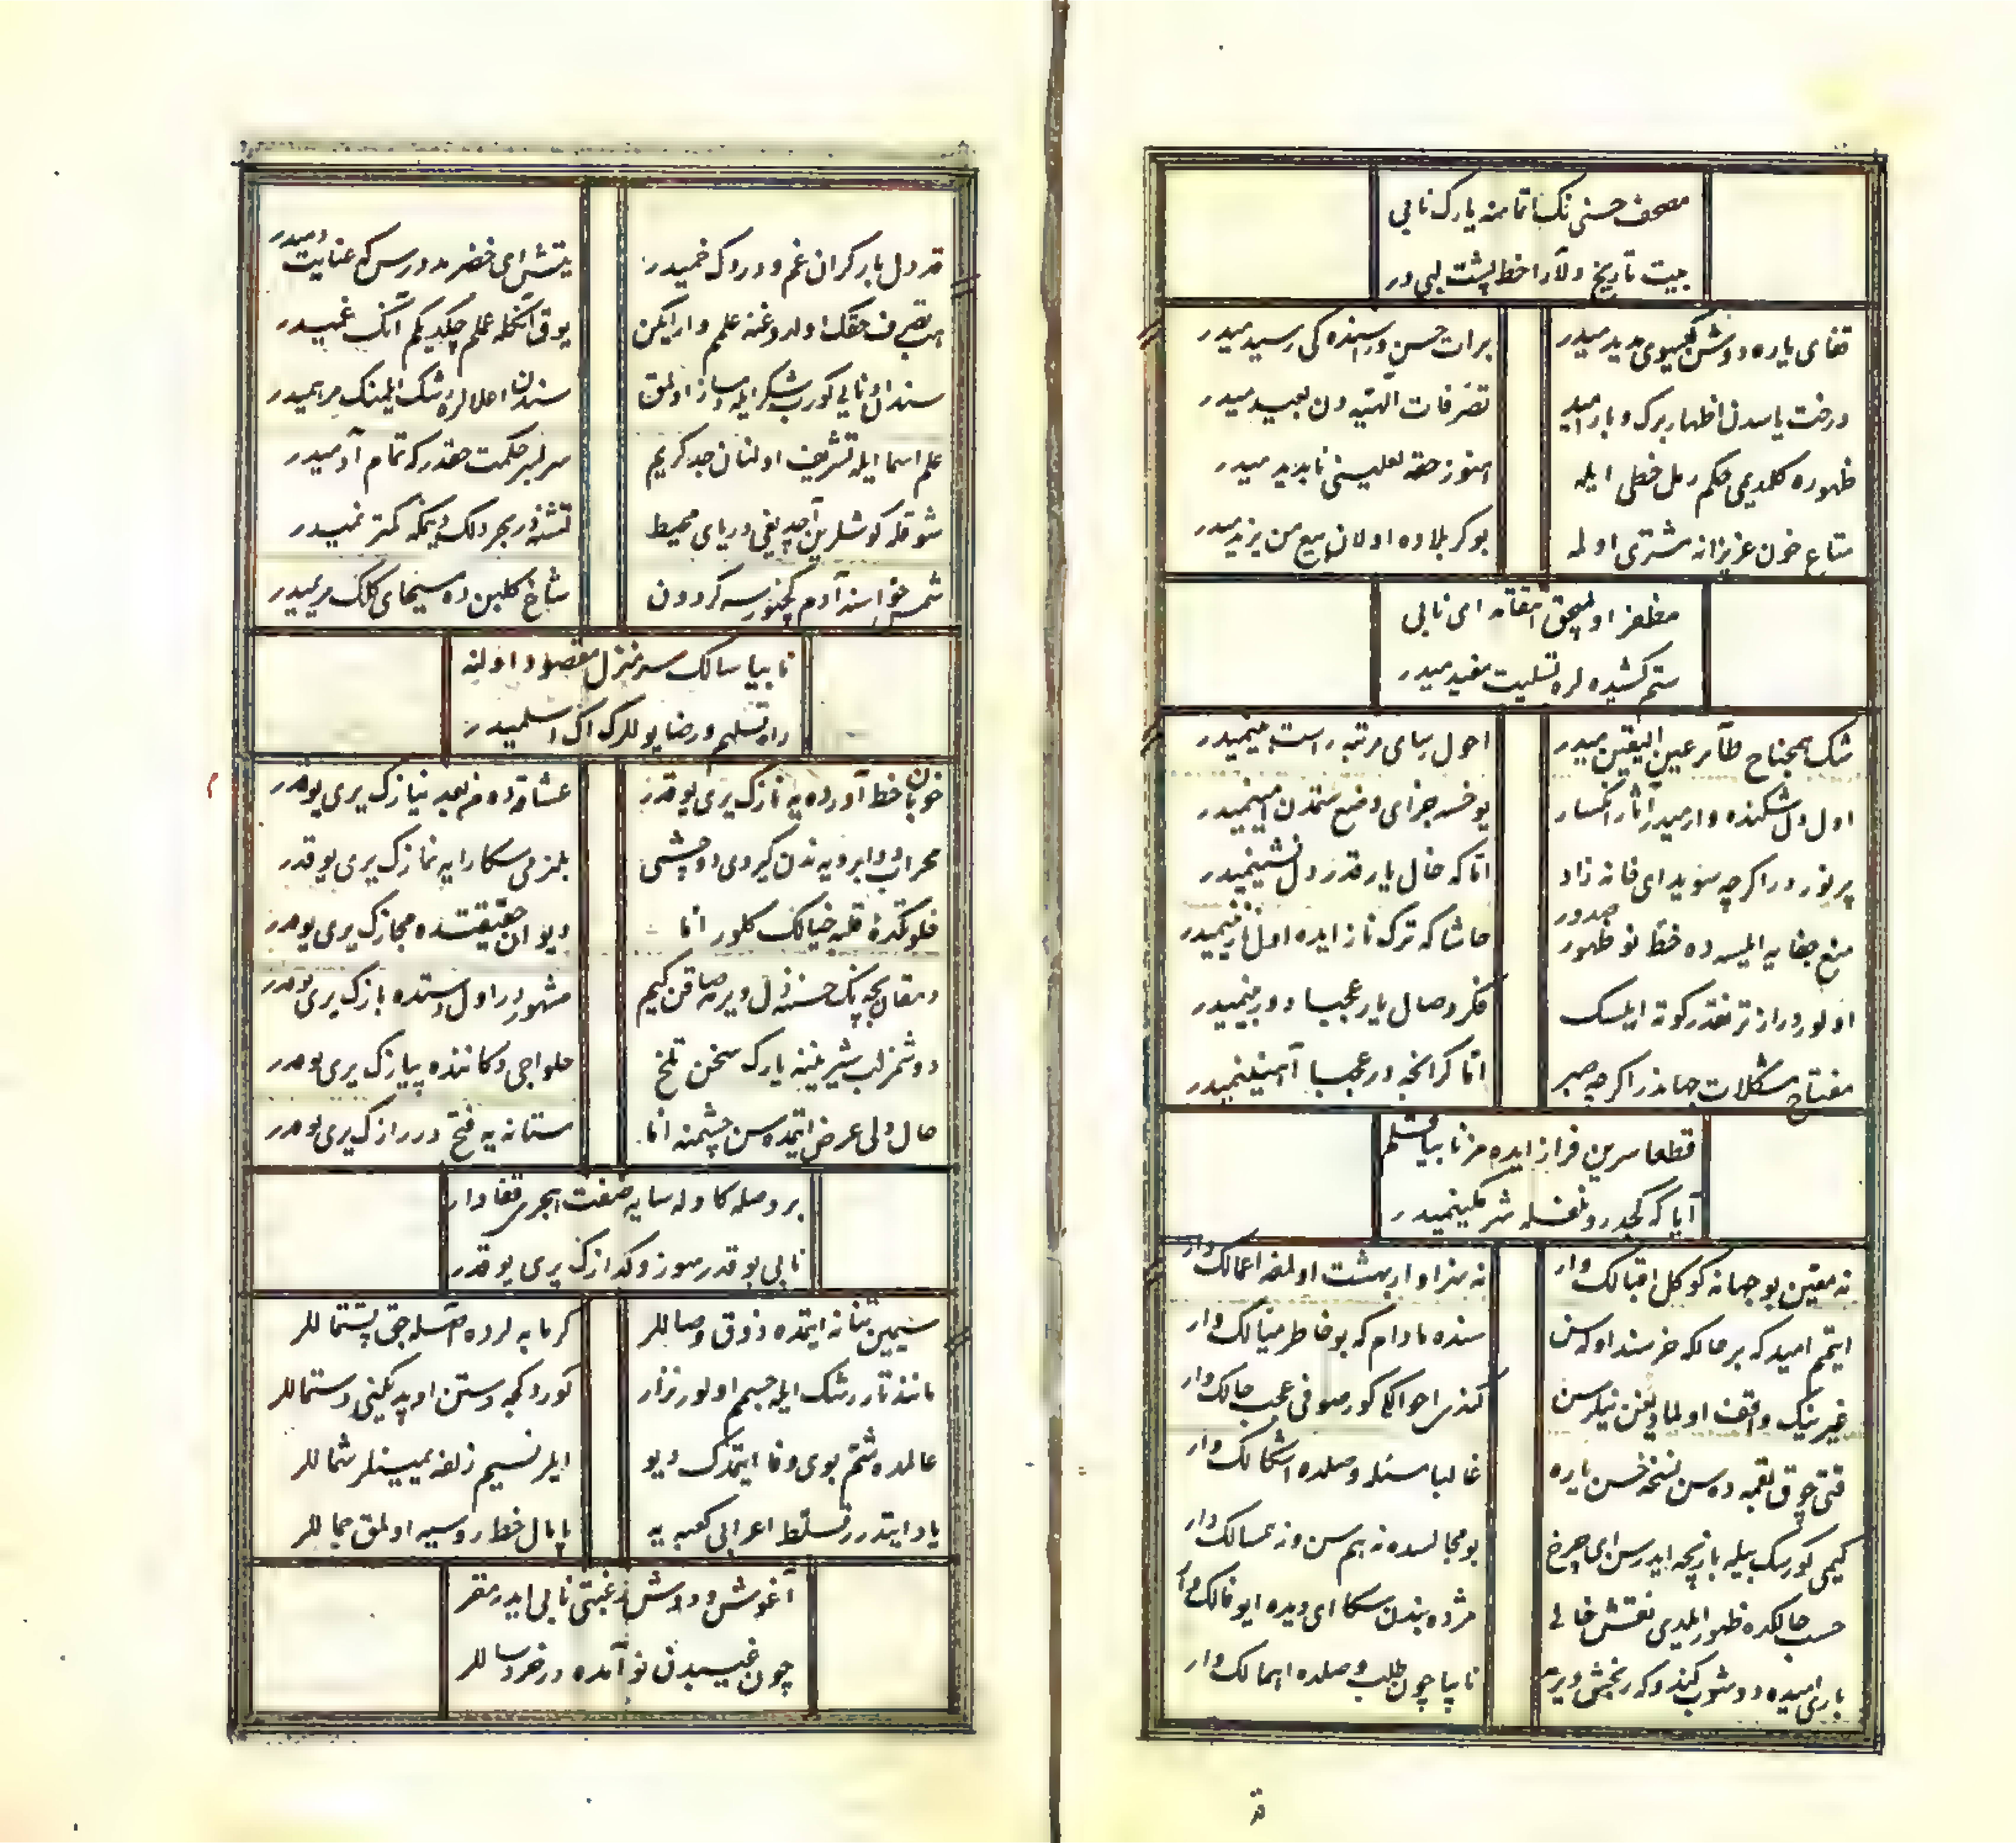 مصحف حسنی نک اتمامنه یارک نابی
بیت تاریخ ولادا خط پشت لبی در
قفای یاره دوشن کیسوی مدید میدر
برات حسن وراسنده کی رسید میدر
درخت یاسدن اظهار برک و بار امید
تصرفات الهیه دن بعید میدر
ظهوره کلدیمی حکم رمل خطی ایله
هنوز حقه لعلینی نابدید میدر
متاع خون عزیزانه مشتری اوله
بو کربلاده اولان بیع من یزید میدر
مظفر اولیجق انتقامه ای نابی
ستم کشیده لره تسلیت مفید میدر
شک همجناح طائر عین الیقین میدر
احول بیای مرتبه راست بین میدر
اول دل شکنده وار میدر آثار انکسار
یوخسه جزای وضع ستمدن امین میدر
پر نور در اکرچه سویدای خانه زاد
اما که خال یار قدر دل نشین میدر
منع جفایه ایلسه ده خط نو ظهور صدور
حاشا که ترک ناز ایده اول نازنین میدر
اولور دراز تر نقدر کوته ایلسک
فکر وصال یار عجبا دوربین میدر
مفتاح مشکلات جهاندر اکرچه صبر
اما کرانجه در عجبا آهنین میدر
قطعا سرین فراز ایده مز نابیا قلم
آیا که کجدرونغله شرمکین میدر
نه مقین بو جهانه کوکل اقبالک وار
نه سزاوار بهشت اولمغه اعمالک وار
ایتم امید که بر حالکه خرسند اوله سن
سنده مادام که بو خاطر میالک وار
غیرینک واقف اولمادیغن نیلرسن
کندی احوالکی کور صوفی عجب حالک وار
قتی چوق تعمیه ده سن نسخه حسن یاره
غالبا مسئله وصلده اشکالک وار
کیمی کورسک بیله بازیچه ایدرسن ای چرخ
بو مجالسده نه هم سن و نه همسالک وار
حسب حالکده ظهور ایلدی نقش خالی
مژده بندن سکا ای دیده ایو فالک وار
باری امیده دوشوب کندوکه رنجش ویرمه
نابیا چون طلب وصلده اهمالک وار
قد
قد دل بار کران غم و دردک خمیدر
یتش ای خضر مدد رس که عنایت دمیدر
بی تصرف حقک اولدوغنه علمم وار ایکن
یوق آنکله عملم چکدیکم آنک غمیدر
سندن اونایی کورب شکر ایله دمساز اولمق
سندن اعلالره رشک ایلمنک مرهمیدر
علم اسما ایله تشریف اولنان جد کریم
سر لبر حکمت حقدر که تمام آدمیدر
شو قدر کوشلرین آچدیغی دریای محیط
تشنه در بحر دلک دیمکه کمتر نمیدر
شمسه خواسند آدم کچنور سه کردون
شاخ کلبن ده مسیحای کلک مریمیدر
نابیا سالک سر منزل مقصود اولنه
راه تسلیم و رضا یوللرک اک اسلمیدر
خوبان خط آورده یه نازک یری یوقدر
عشاقده من بعد نیازک یری یوقدر
محراب دو ابرویه ندن کیردی او چشمی
بلنزمی سکارایه نمازک یری یوقدر
خلوتکده قلبه خیالک کلور اما
دیوان حقیقتده مجازک یری یوقدر
دهقان بچه نک حسننه دل ویرمه صاقن کیم
مشهوردر اول دستده بازک یری یوقدر
دوشمز لب شیرینینه یارک سخن تلخ
حلواجی دکاننده پیازک یری یوقدر
حال دلی عرض ایتمده سن چشمنه اما
مستانه یه فتح در رازک یری یوقدر
بر وصله کاوله سایه صفت هجری قفادار
نابی یوقدر سوز و کدازک یری یوقدر
سیمین تنانه ایتمده ذوق وصاللر
کرمابه لرده اصیله جق پشتماللر
مانند تار رشک ایله جسمم اولور نزار
کوردکجه دستن اوپدیکنی دستماللر
عالمده شم بوی وفا ایتمدک دیو
ایلر نسیم زلفه یمینلر شماللر
یاد ایتدرر تسلط اعرابی کعبه یه
پامال خط روسیه اولمق جماللر
آغوش و دوش رغبتی نابی ایدر مقر
چون غیبدن نو آمده در خردساللر